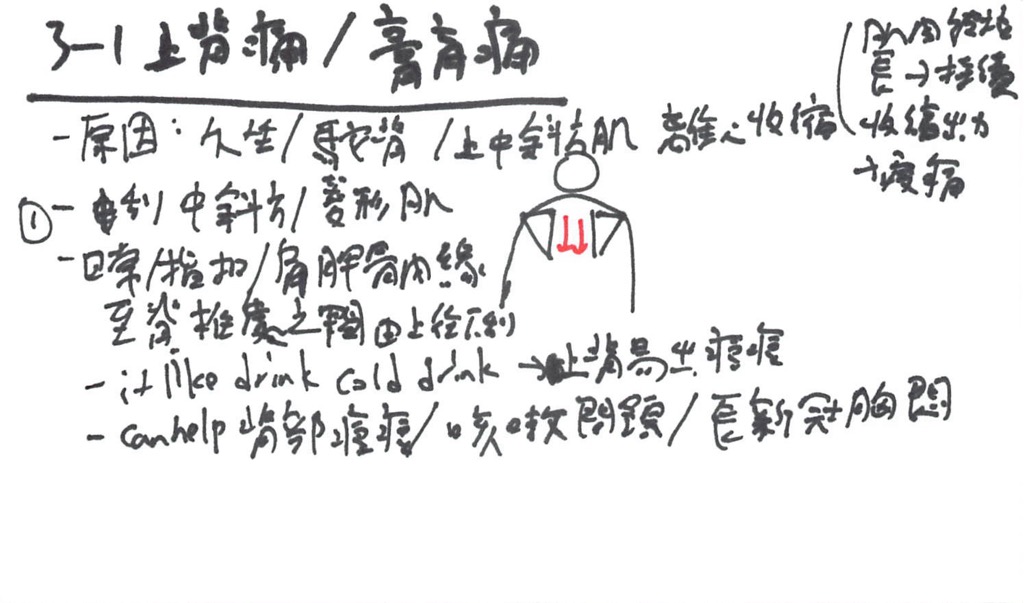 3-1 上背痛/膏肓痛
- 原因:久坐/駝背/上中斜方肌 離心收縮
(肌肉徑拉
長→持續
收縮出力
→痠痛
①- 刮中斜方/菱形肌
- 日常/指扣/肩胛骨內緣
至脊椎處之間由上往下刮
- it like drink cold drink → 上背易出痘痘
- can help 背部痘痘/咳嗽問題/長新冠胸悶